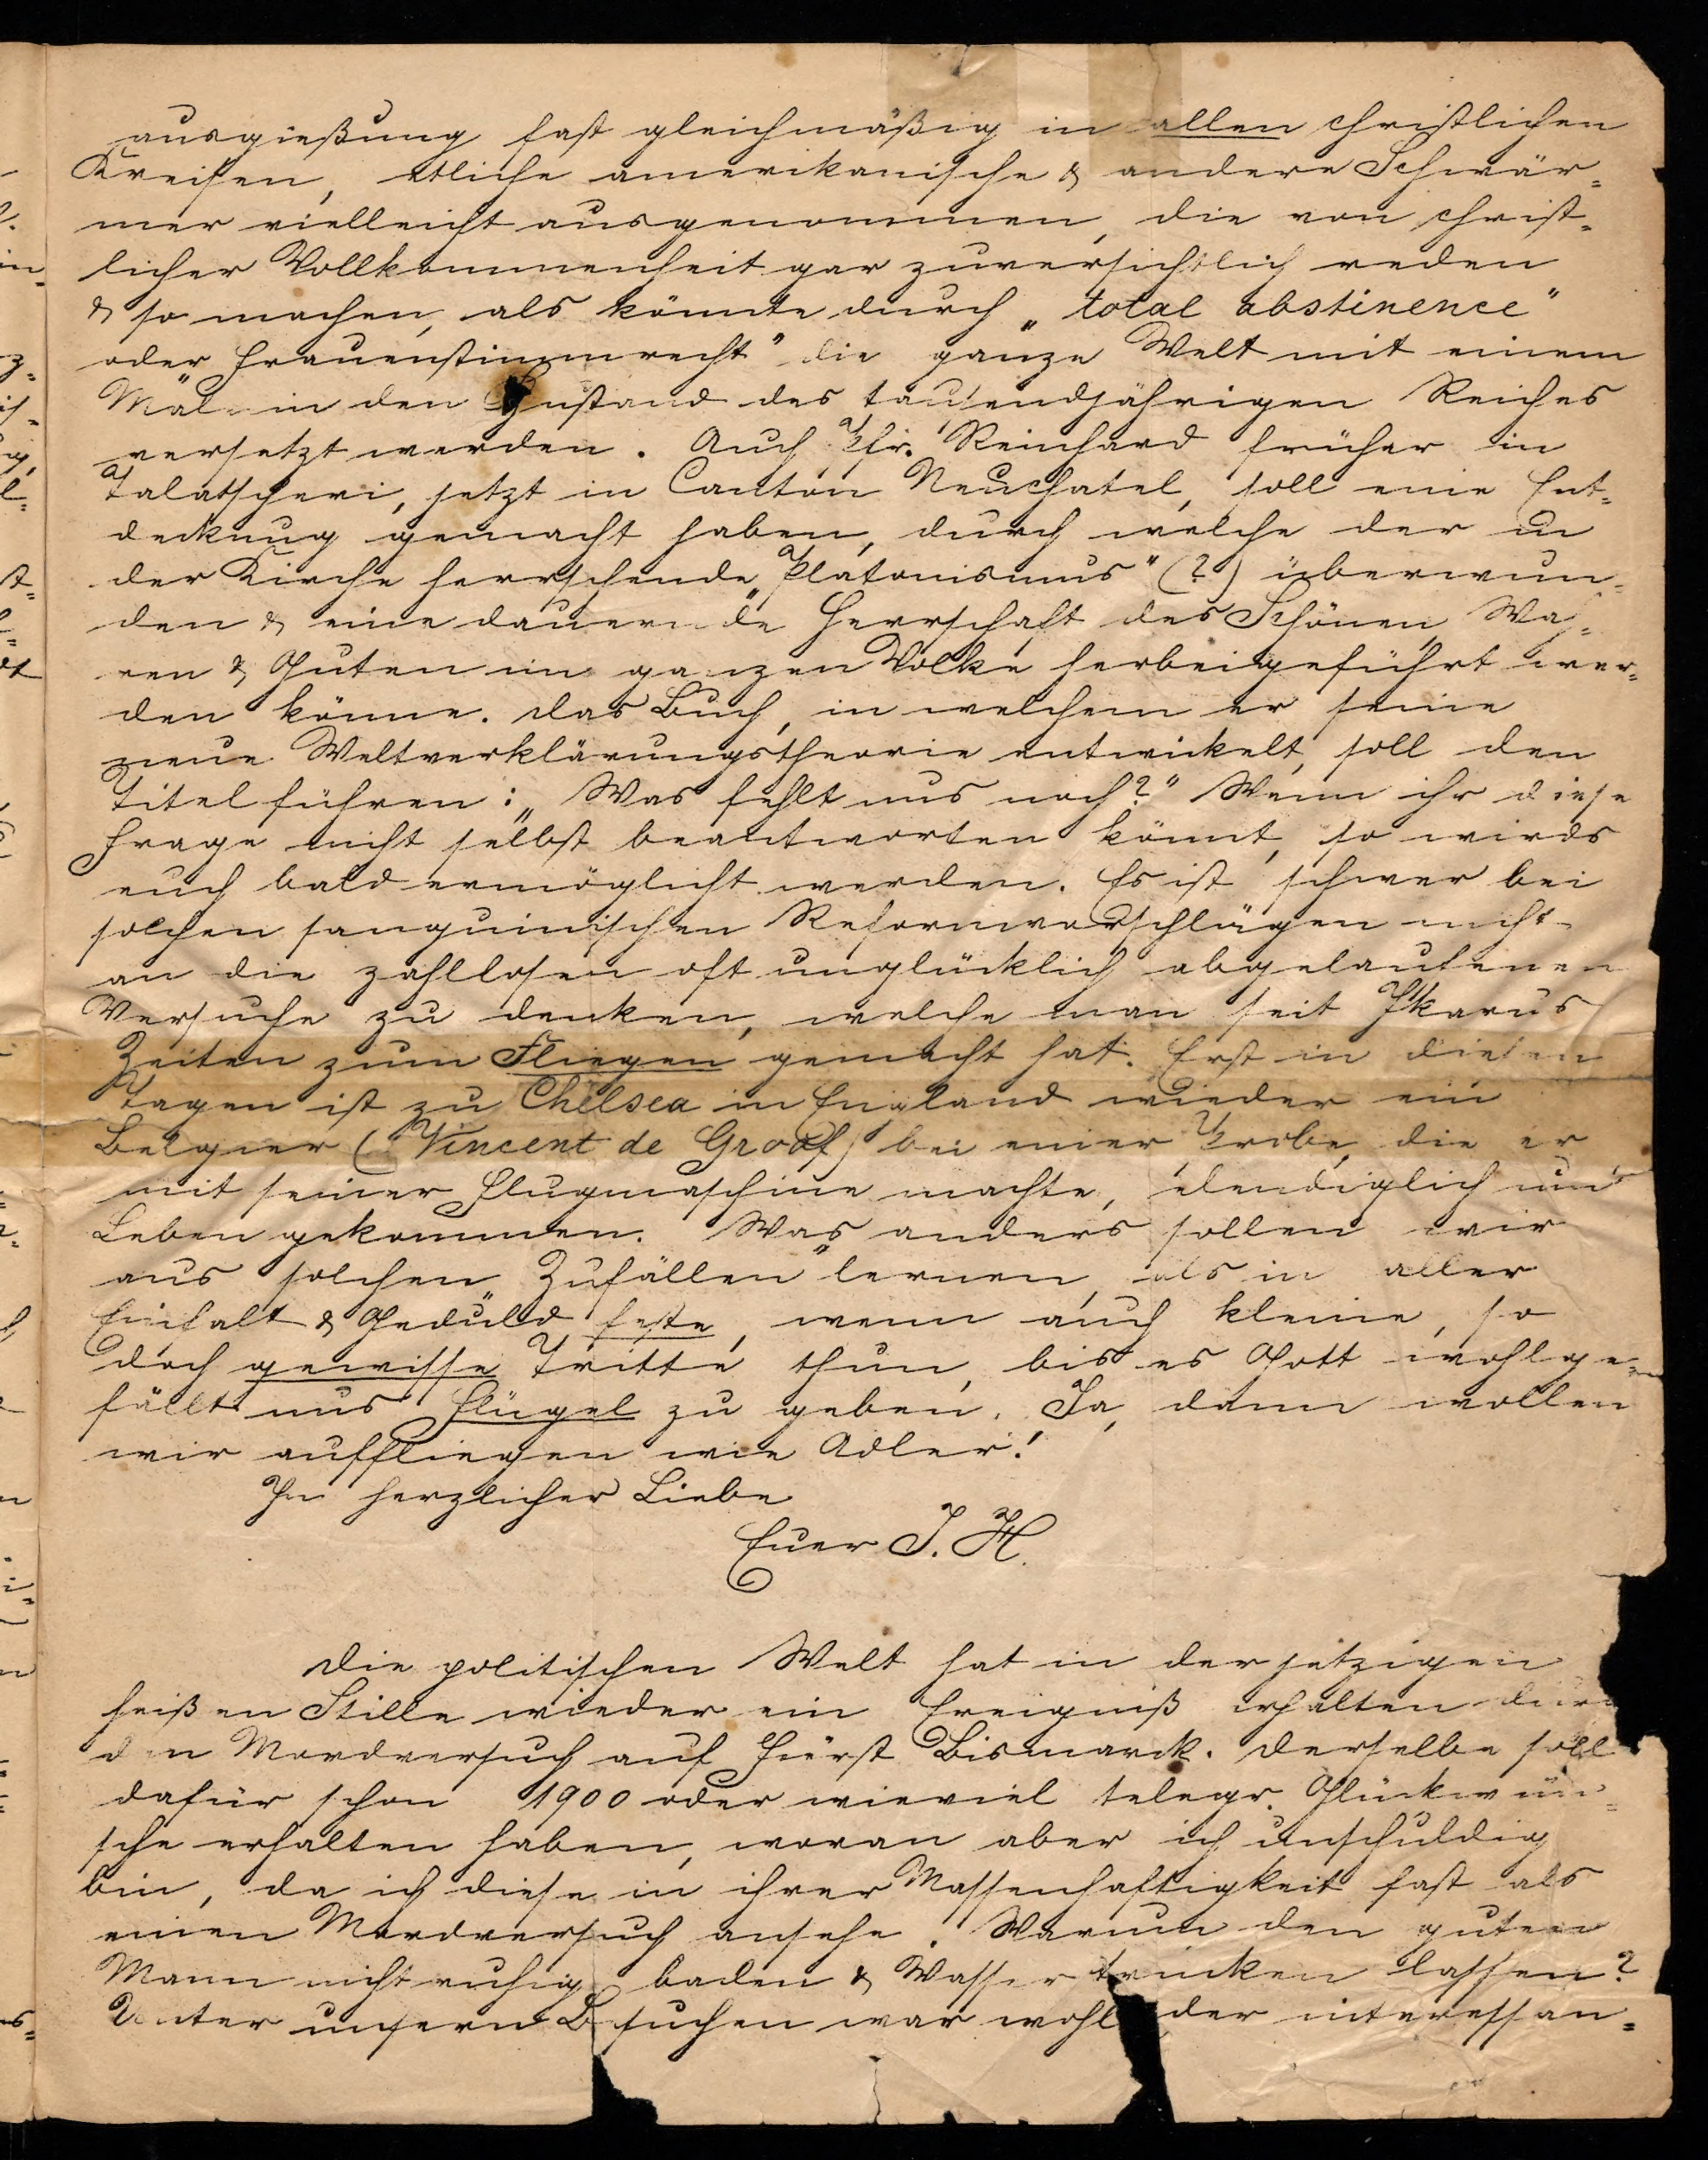 ausgießung fast gleichmäßig in allen christlichen
Kreisen, etliche amerikanische & andere Schwär-
mer vielleicht ausgenommen, die von christ-
licher Vollkommenheit gar zuversichtlich reden
& so machen, als könnte durch „total abstinence"
oder Frauenstimmrecht" die ganze Welt mit einem
Mal in den Zustand des tausendjährigen Reiches
versetzt werden. Auch Pfr. Reinhard früher in
Talatscheri, jetzt in Canton Neuchatel, soll eine Ent-
deckung gemacht haben, durch welche der in
der Kirche herrschende „Platonismus" (?) überwun-
den & eine dauernde Herrschaft des Schönen Wah-
ren & Guten im ganzen Volke herbeigeführt wer-
den könne. Das Buch, in welchem er seine
neue Weltverklärungstheorie entwickelt, soll den
Titel führen: „Was fehlt uns noch?" Wenn ihr diese
Frage nicht selbst beantworten könnt, so wirds
euch bald ermöglicht werden. Es ist schwer bei
solchen sanguinischen Reformvorschlägen nicht
an die zahllosen oft unglücklich abgelaufenen
Versuche zu denken, welche man seit Ikarus
Zeiten zum Fliegen gemacht hat. Erst in diesen
Tagen ist zu Chelsea in England wieder ein
Belgier (Vincent de Groof) bei einer Probe, die er
mit seiner Flugmaschine machte, elendiglich um's
Leben gekommen. Was anders sollen wir
aus solchen „Zufällen" lernen, als in aller
Einfalt & Geduld feste, wenn auch kleine, so
doch gewisse Tritte thun, bis es Gott wohlge-
fällt uns Flügel zu geben. Ja, dann wollen
wir auffliegen wie Adler!
In herzlicher Liebe
Euer J. H.
Die politischen Welt hat in der jetzigen
heißen Stille wieder ein Ereigniß erhalten durch
den Mordversuch auf Fürst Bismarck. Derselbe soll
dafür schon 1900 oder wieviel telegr. Glückwün-
sche erhalten haben, woran aber ich unschuldig
bin, da ich diese in ihrer Massenhaftigkeit fast als
einen Mordversuch ansehe. Warum den guten
Mann nicht ruhig baden & Wasser trinken lassen?
Unter unsern Besuchen war wohl der interessan-